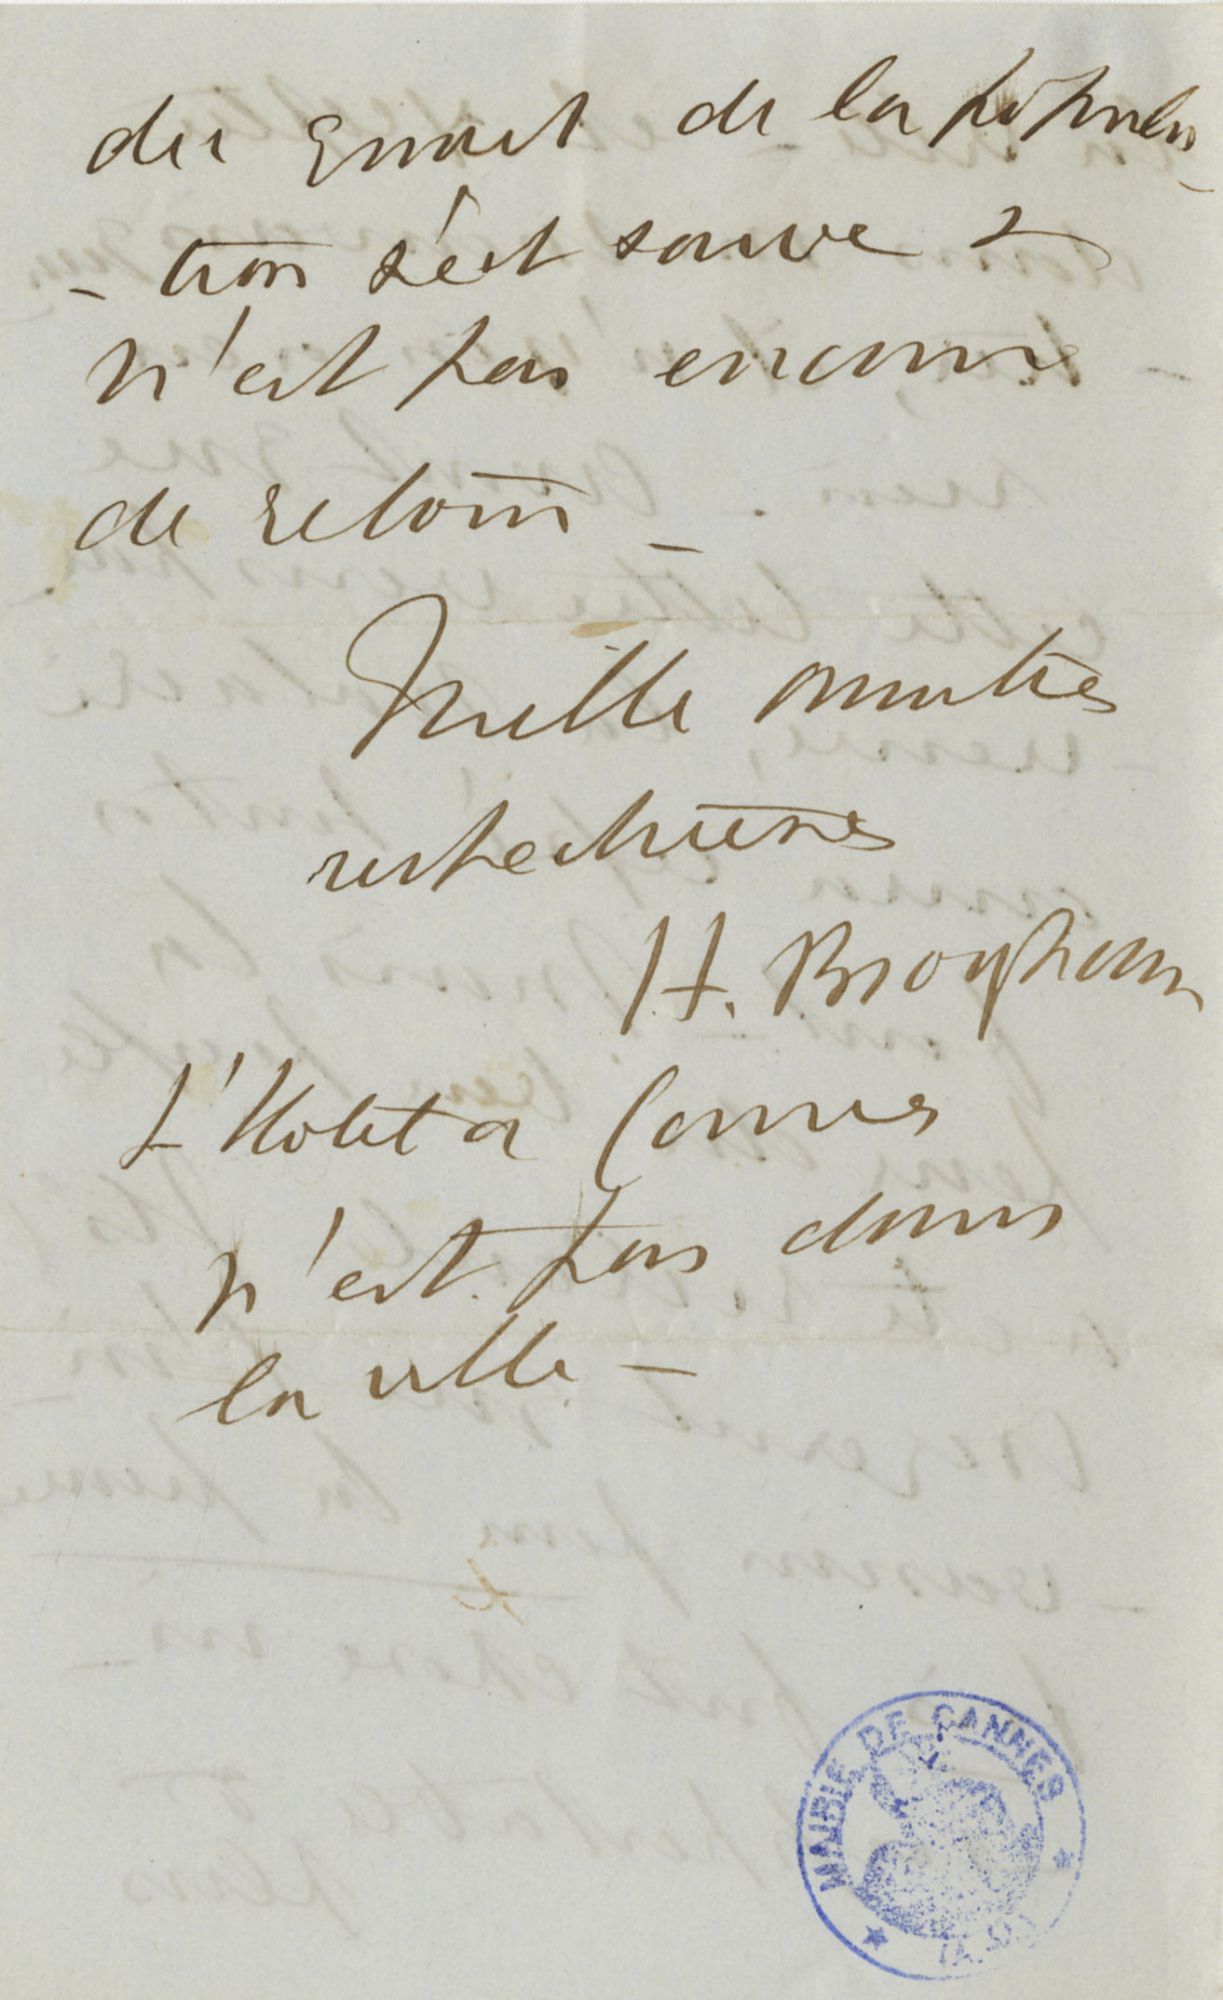 du quart de la popula
- tion s'est sauvé &
n'est pas encore
de retour -
Mille amitiés
respectueuses
H. Brougham
L'Hotel a Cannes
n'est pas dans
la ville -
MAIRIE DE CANNES